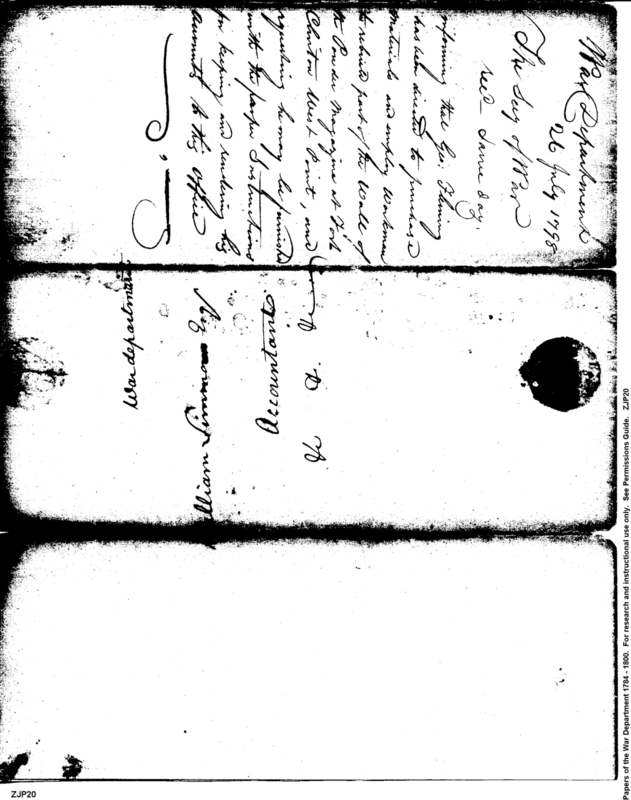 War Department
26 July 1798
The Secy of War
recd same day.
informing that Geo. Fleming
has been directed to purchase
materials and employ Workmen
to rebuild part of the Wall of
the Powder Magazine at Fort
Clinton West Point, and
requesting he may be furnished
with the proper Instructions
for keeping and rendering his
accounts to this office
Accountant
William Simmons Esqr
War department
Papers of the War Department 1784 - 1800. For research and instructional use only. See Permissions Guide. ZJP20
ZJP20